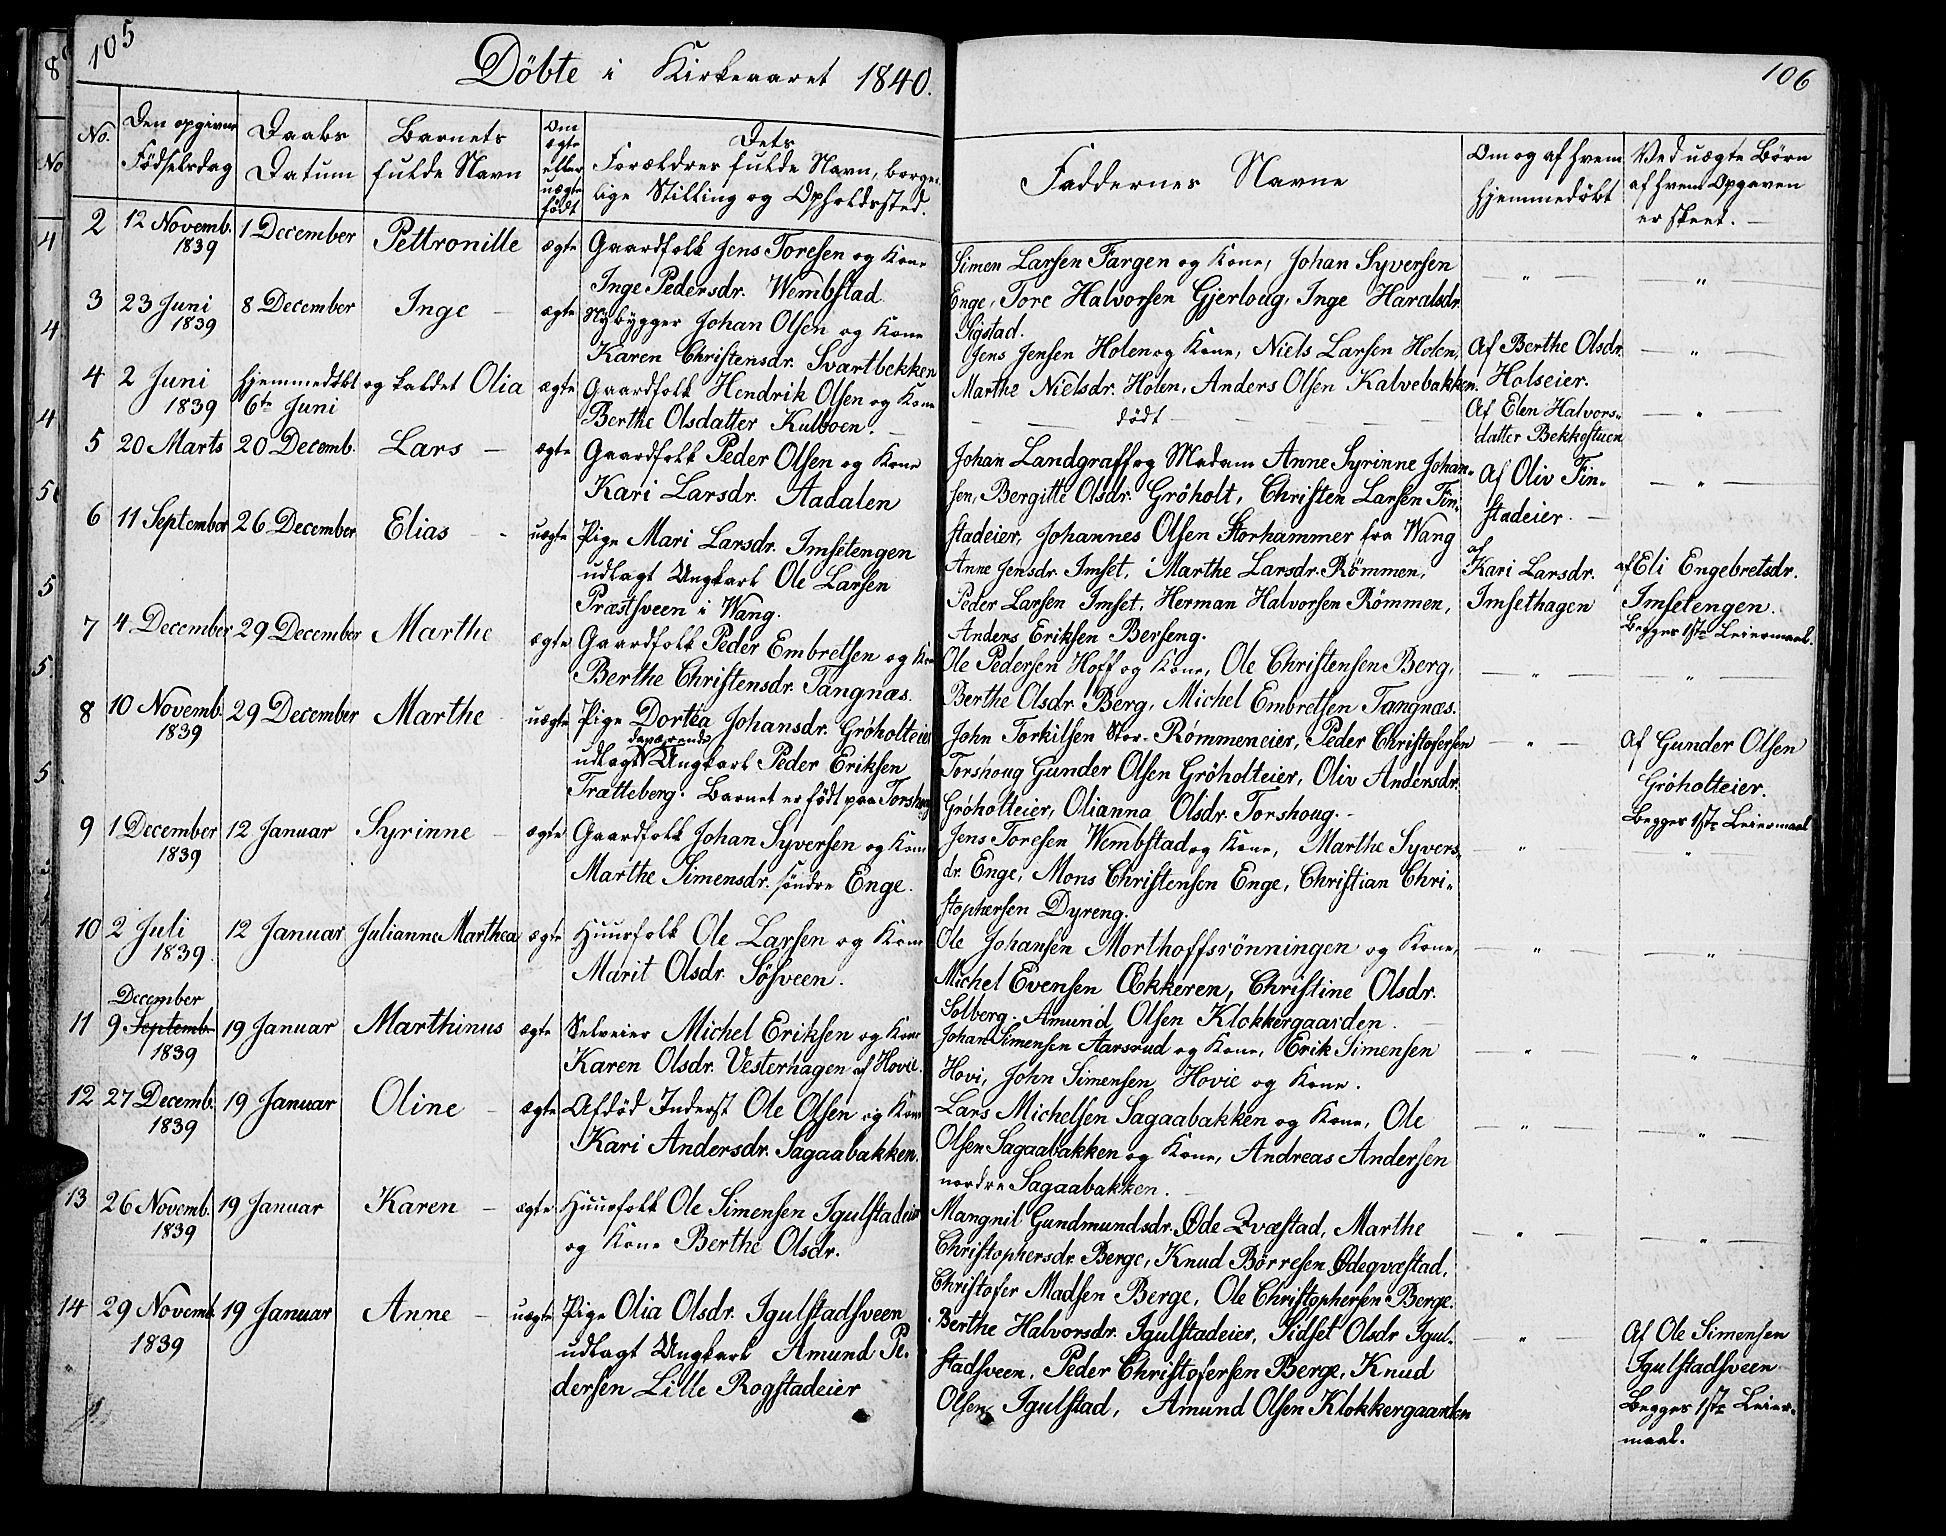 105
Döbte i Kirkeaaret 1840.
No.
Den opgivne Födselsdag
Daabs Datum
Barnets fulde Navn
Om ægte eller uægte födt
Dets Forældres fulde Navn, borgerlige Stilling og Opholdssted.
2
12 Novemb. 1839
1 December
Pettronille
ægte
Gaardfolk Jens Toresen og Kone
Inge Pedersdr. Wembstad
3
23 Juni 1839
8 December
Inge
ægte
Nybygger Johan Olsen og Kone
Karen Christensdr. Svartbekken
4
2 Juni 1839
hjemmedöbt og kaldet Olia
6te Juni
ægte
Gaardfolk Hendrik Olsen og Kone
Berthe Olsdatter Kulboen.
5
20 Marts
20 Decemb.
Lars
ægte
Gaardfolk Peder Olsen og Kone
Kari Larsdr. Aadalen
6
11 September
26 December
Elias
uægte
Pige Mari Larsdr. Imsetengen
udlagt Ungkarl Ole Larsen
Præstsveen i Wang.
7
4 December
29 December
Marthe
ægte
Gaardfolk Peder Embretsen og Kone
Berthe Christensdr. Tangnæs.
8
10 Novemb. 1839
29 December
Marthe
uægte
Pige Dortea Johansdr. Gröholteier
udlagt daværende Ungkarl Peder Eriksen
Trætteberg. Barnet er födt paa Torshoug
9
1 December 1839
12 Januar
Syrinne
ægte
Gaardfolk Johan Syversen og Kone
Marthe Simensdr. söndre Enge.
10
2 Juli 1839.
12 Januar
Julianne Marthea
ægte
Huusfolk Ole Larsen og Kone
Marit Olsdr. Sösveen.
11
December
9 Septemb. 1839
19 Januar
Marthinus
ægte
Selveier Michel Eriksen og Kone
Karen Olsdr. Vesterhagen af Hovie.
12
27 Decemb. 1839
19 Januar
Oline
ægte
Afdöd Inderst Ole Olsen og Kone
Kari Andersdr. Sagaabakken.
13
26 Novemb. 1839
19 Januar
Karen
ægte
Huusfolk Ole Simensen Igulstadeier
og Kone Berthe Olsdr.
14
29 Novemb. 1839
19 Januar
Anne
uægte
Pige Olia Olsdr. Igulstadsveen
udlagt Ungkarl Amund Pe-
dersen Lille Rogstadeier
106
Faddernes Navne
Om og af hvem hjemmedöbt
Ved uægte Börn af hvem Opgaven er skeet.
Simen Larsen Fargen og Kone, Johan Syversen
Enge, Tore Halvorsen Gjerloug, Inge Haralsdr.
Sigstad.
Jens Jensen Holen og Kone, Niels Larsen Holen,
Marthe Nielsdr. Holen, Anders Olsen Kalvebakken.
Af Berthe Olsdr.
Holseier.
dödt
Af Elen Halvors-
datter Bekkestuen
Johan Landgraff og Madam Anne Syrinne Johan-
sen, Bergitte Olsdr. Gröholt, Christen Larsen Fin-
stadeier, Johannes Olsen Storhammer fra Wang
Af Oliv Fin-
stadeier.
Anne Jensdr. Imset, Marthe Larsdr. Römmen,
Peder Larsen Imset, Herman Halvorsen Römmen,
Anders Eriksen Berseng.
af
Kari Larsdr.
Imsethagen
af Eli Engebretsdr.
Imsetengen.
Begges 1ste Leiermaal.
Ole Pedersen Hoff og Kone, Ole Christensen Berg,
Berthe Olsdr. Berg, Michel Embretsen Tangnæs.
John Torkilsen Stor-Römmeneier, Peder Christofersen
Torshoug Gunder Olsen Gröholteier, Oliv Andersdr.
Gröholteier, Olianna Olsdr. Torshoug.
Af Gunder Olsen
Gröholteier.
Begges 1ste Leiermaal
Jens Toresen Wembstad og Kone, Marthe Syvers-
dr. Enge, Mons Christensen Enge, Christian Chri-
stophersen Dyreng.
Ole Johansen Morthoffsrönningen og Kone,
Michel Evensen Œkkeren, Christine Olsdr.
Solberg. Amund Olsen Klokkergaarden.
Johan Simensen Aarsrud og Kone, Erik Simensen
Hovi, John Simensen Hovie og Kone.
Lars Michelsen Sagaabakken og Kone, Ole
Olsen Sagaabakken og Kone, Andreas Andersen
nordre Sagaabakken.
Mangnil Gundmundsdr. Öde Qvæstad, Marthe
Christophersdr. Berge, Knud Börresen Ödeqvæstad,
Christofer Madsen Berge, Ole Christophersen Berge.
Berthe Halvorsdr. Igulstadeier, Sidset Olsdr Igul-
stadsveen, Peder Christofersen Berge, Knud
Olsen Igulstad, Amund Olsen Klokkergaarden
Af Ole Simensen
Igulstadsveen
Begges 1ste Leier-
maal.